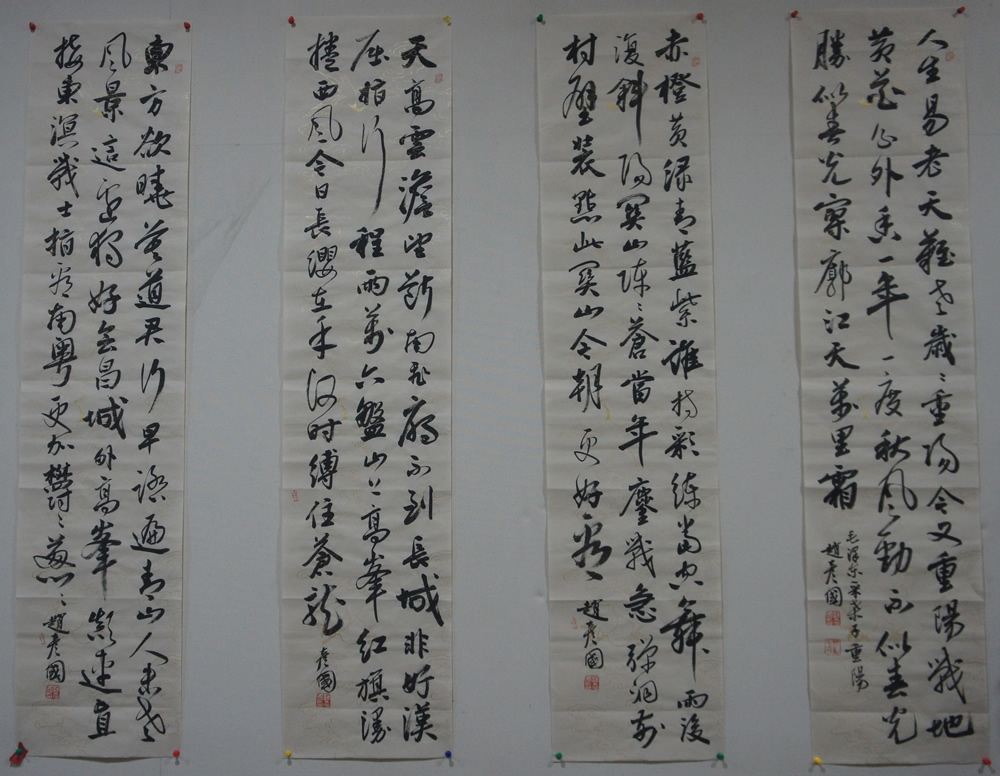 人生易老天難老歲〻重陽今又重陽戰地
黃花分外香一年一度秋風勁不似春光
勝似春光寥廓江天萬里霜
毛澤東采桑子重陽
趙彥國
赤橙黃綠青藍紫誰持彩練當空舞雨後
復斜陽關山陣〻蒼當年鏖戰急彈洞前
村壁裝點此關山今朝更好看 趙彥國
天高雲澹望斷南飛雁不到長城非好漢
屈指行程兩萬六盤山上高峯紅旗漫
捲西風今日長纓在手何時縛住蒼龍 彥國
東方欲曉莫道君行早踏遍青山人未老
風景這邊獨好會昌城外高峯顛連直
接東溟戰士指看南粵更加鬱〻蔥〻 趙彥國